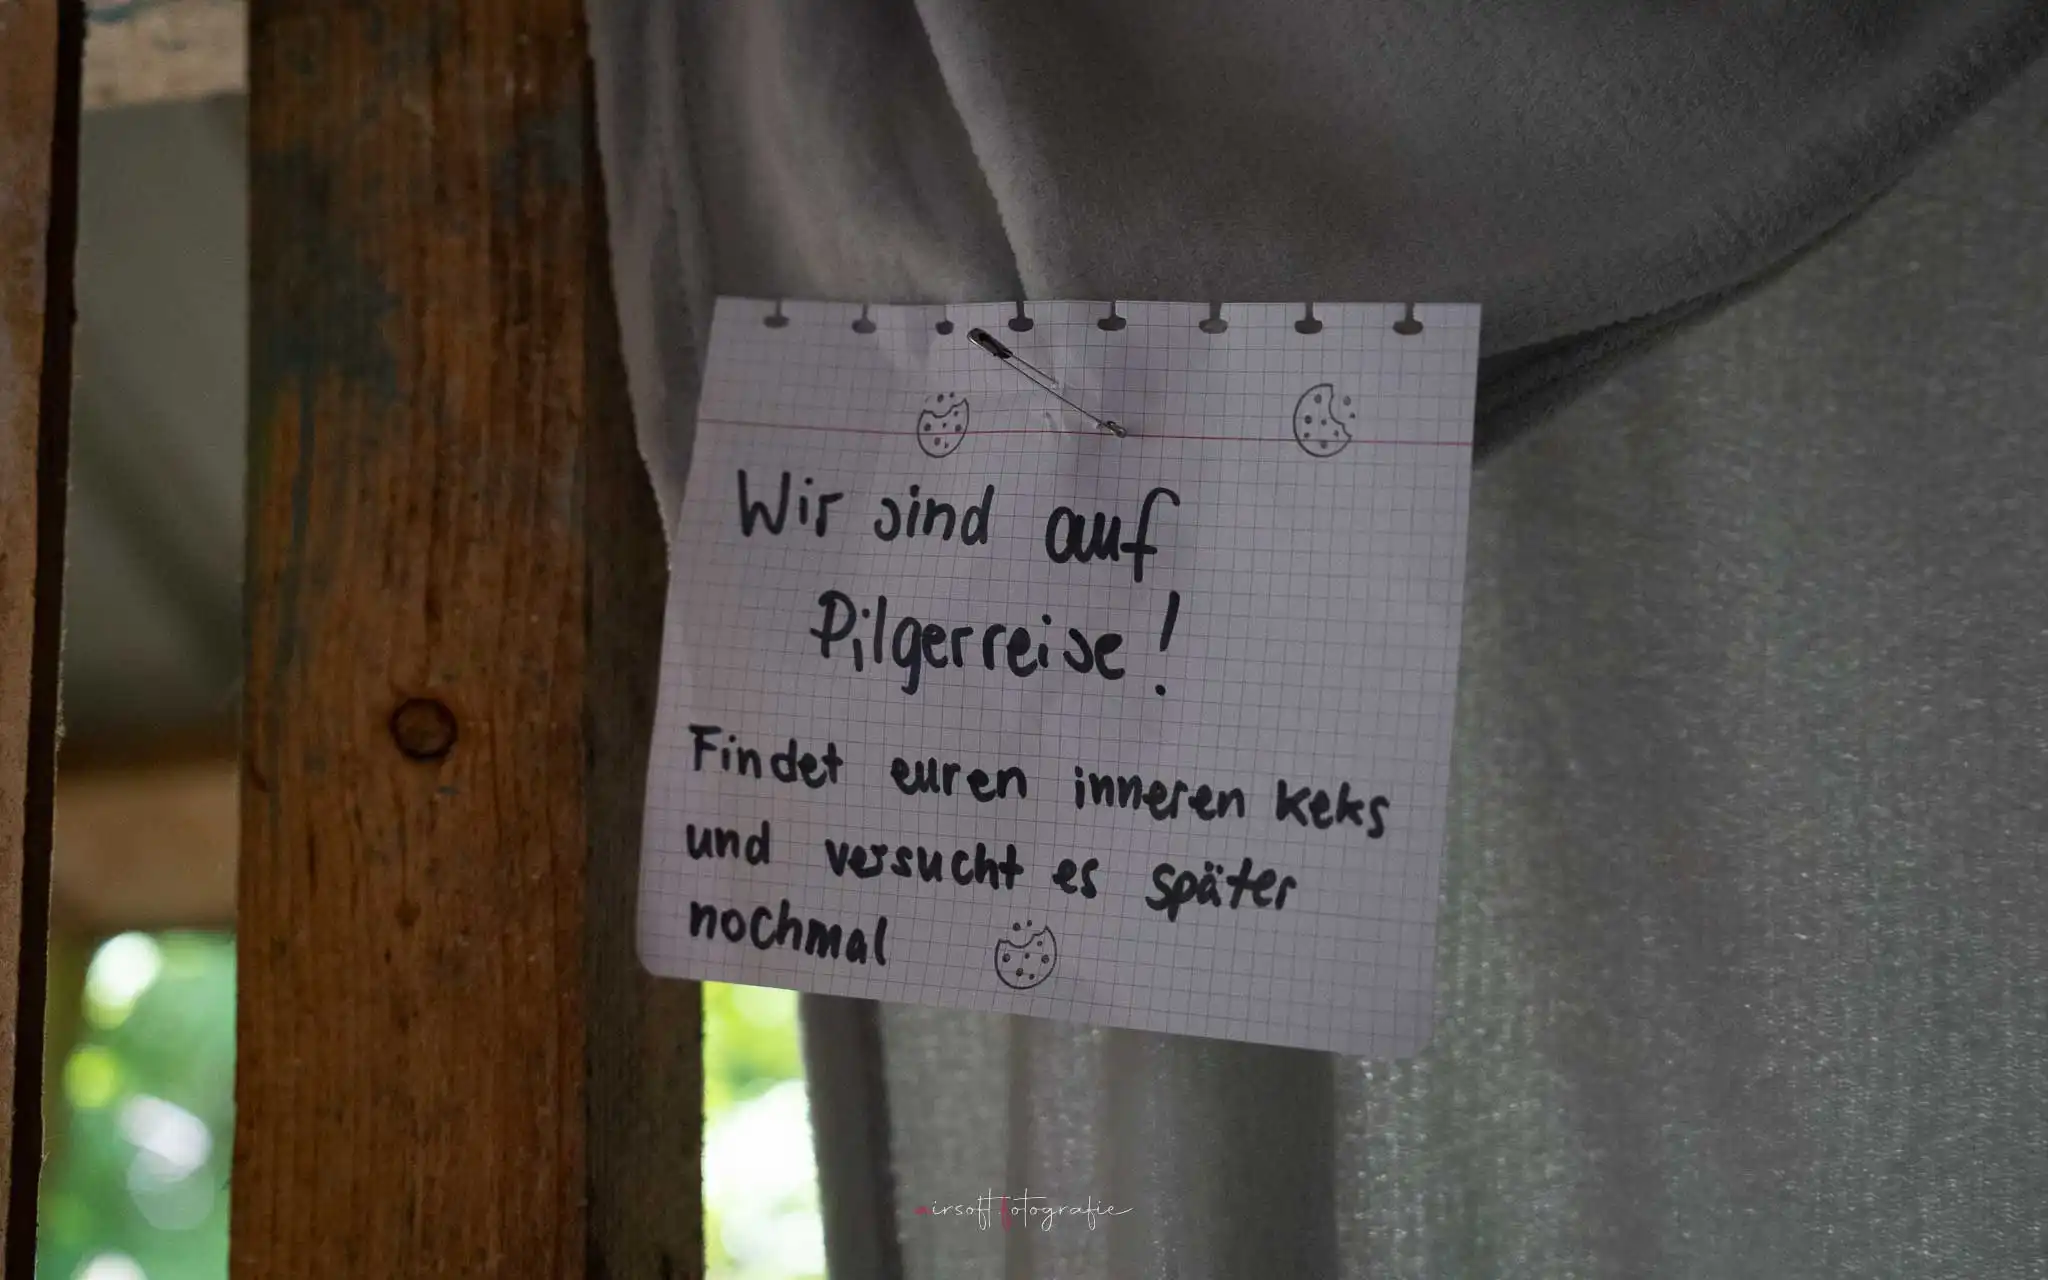 Wir sind auf
Pilgerreise!
Findet euren inneren Keks
und versucht es später
nochmal
airsoft.fotografie